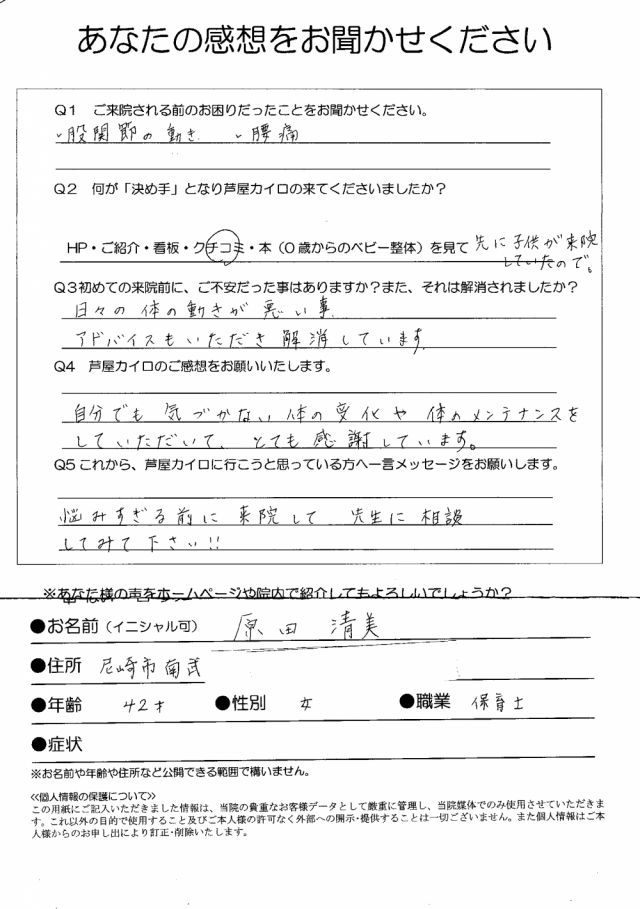 あなたの感想をお聞かせください
Q1　ご来院される前のお困りだったことをお聞かせください。
・股関節の動き　・腰痛
Q2　何が「決め手」となり芦屋カイロの来てくださいましたか？
HP・ご紹介・看板・クチコミ・本（0歳からのベビー整体）を見て 先に子供が来院
していたので。
Q3初めての来院前に、ご不安だった事はありますか？また、それは解消されましたか？
日々の体の動きが悪い事
アドバイスもいただき解消しています
Q4　芦屋カイロのご感想をお願いいたします。
自分でも気づかない体の変化や体のメンテナンスを
していただいて、とても感謝しています。
Q5これから、芦屋カイロに行こうと思っている方へ一言メッセージをお願いします。
悩みすぎる前に来院して 先生に相談
してみて下さい!!
※あなた様の声をホームページや院内で紹介してもよろしいでしょうか？
●お名前（イニシャル可）　原田　清美
●住所　尼崎市南武
●年齢　42才　●性別　女　●職業　保育士
●症状
※お名前や年齢や住所など公開できる範囲で構いません。
≪個人情報の保護について≫
この用紙にご記入いただきました情報は、当院の貴重なお客様データとして厳重に管理し、当院媒体でのみ使用させていただきま
す。これ以外の目的で使用すること及びご本人様の許可なく外部への開示・提供することは一切ございません。また個人情報はご本
人様からのお申し出により訂正・削除いたします。